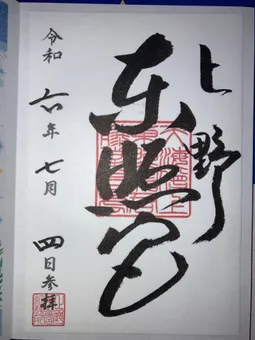 上野
東照宮
令和六年七月四日参拝